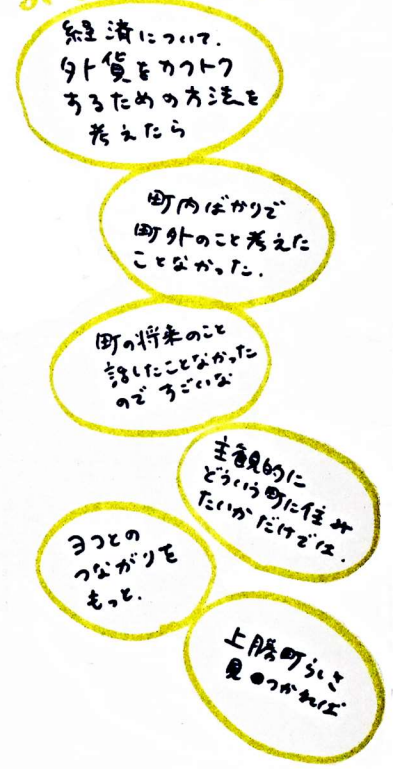 経済について.
外貨をカクトク
するための方法を
考えたら
町内ばかりで
町外のこと考えた
ことなかった.
町の将来のこと
話したことなかった
ので すごいな
主観的に
どういう町に住み
たいか だけでは.
ヨコとの
つながりを
もっと.
上勝町らしさ
見つかれば